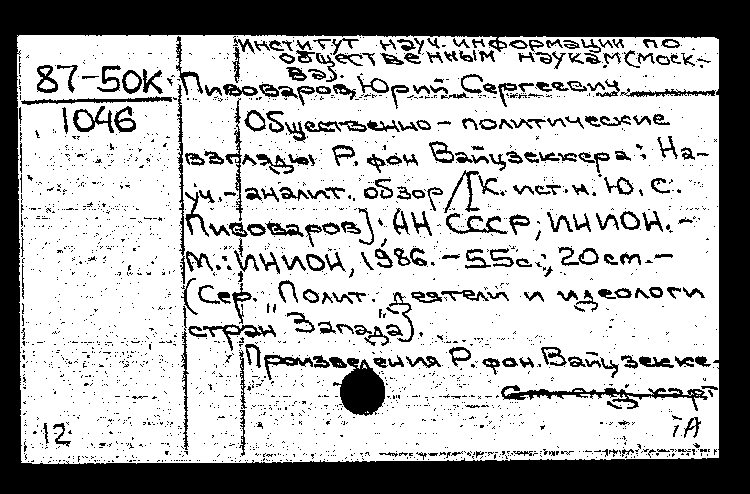 Институт науч. информации по
общественным наукам (Моск-
ва).
87-50К
Пивоваров, Юрий Сергеевич.
1046
Общественно-политические
взгляды Р. фон Вайцзеккера: На-
уч.-аналит. обзор / [К. ист. н. Ю. С.
Пивоваров]; АН СССР, ИНИОН. -
М.: ИНИОН, 1986. - 55с.; 20см. -
(Сер. "Полит. деятели и идеологи
стран Запада").
Произведения Р. фон. Вайцзекке-
См. след. карт
12
ТА